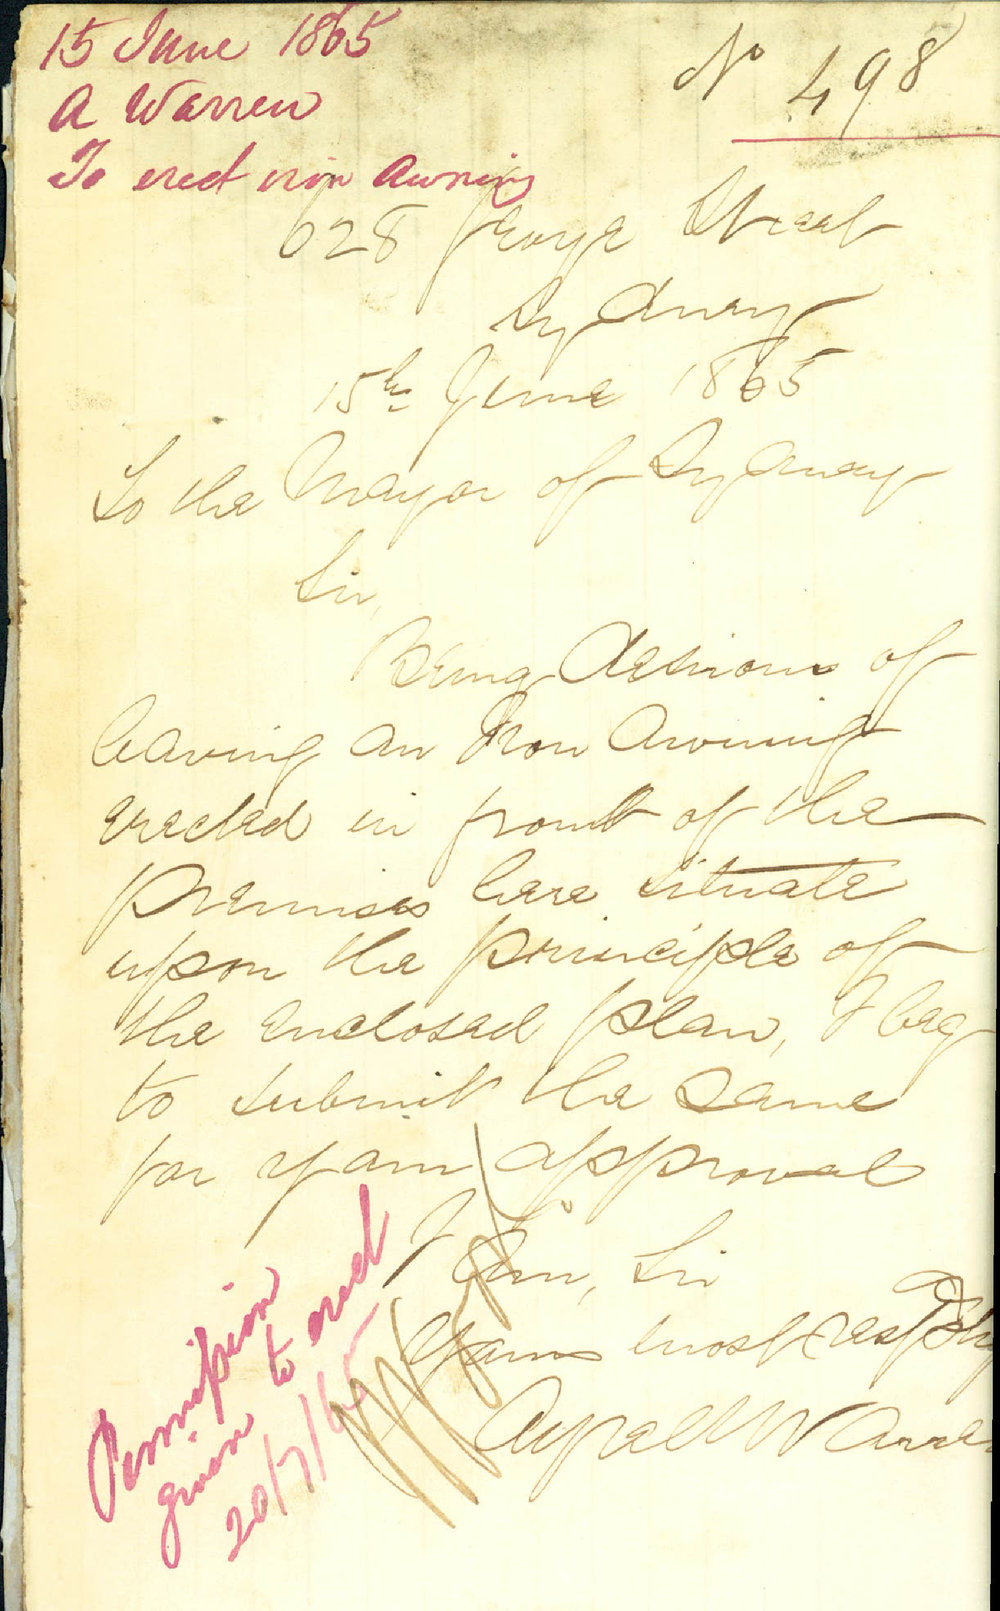 15 June 1865
A Warren
To erect iron awning
No 498
628 George Street
Sydney
15th June 1865
To the Mayor of Sydney
Sir,
Being desirous of
having an Iron Awning
erected in front of the
premises here situate
upon the principle of
the enclosed plan, I beg
to submit the same
for your approval
I am, Sir
Yours most respctfly
Warren
Permission
given to erect
20/7/65